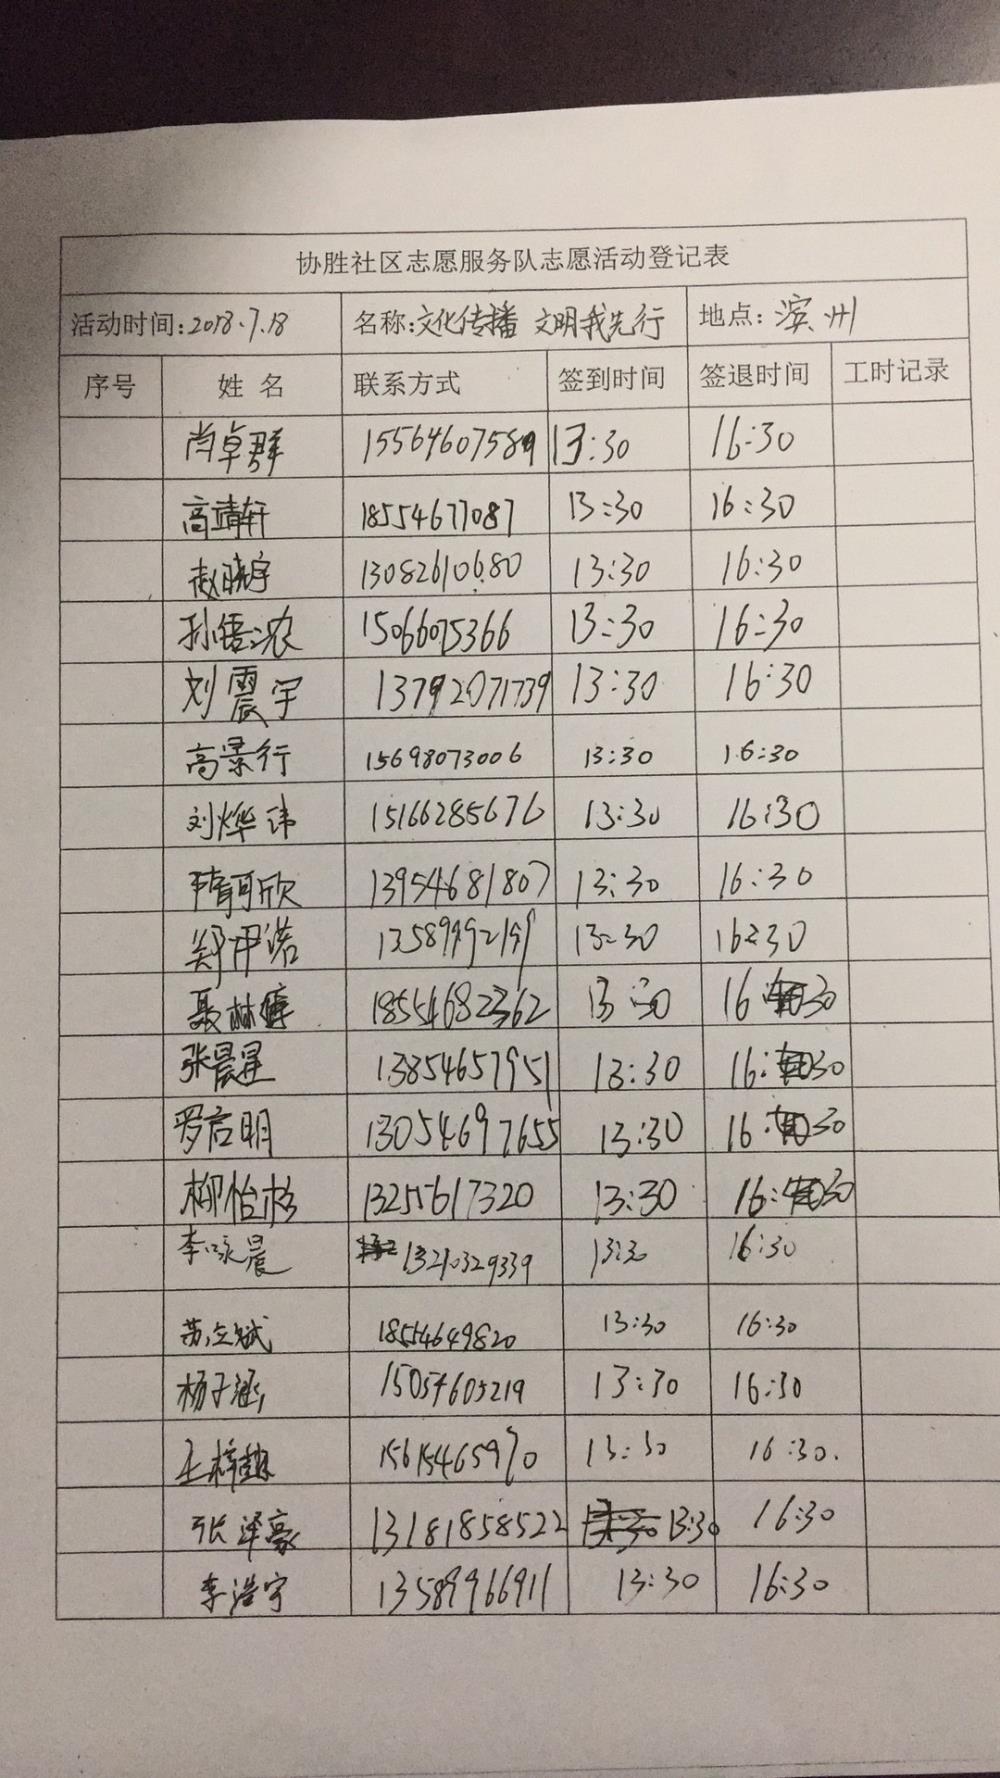 协胜社区志愿服务队志愿活动登记表
活动时间:2018.7.18 名称:文化传播 文明我先行 地点:滨州
序号 姓名 联系方式 签到时间 签退时间 工时记录
尚卓群 15564607589 13:30 16:30
高靖轩 18554677087 13:30 16:30
赵晓宇 13082610680 13:30 16:30
孙语浓 15066075366 13:30 16:30
刘震宇 13792071739 13:30 16:30
高景行 15698073006 13:30 16:30
刘烨纬 15166285676 13:30 16:30
隋可欣 13954681807 13:30 16:30
郑伊诺 13:30 16:30
聂林婷 18554682362 13:30 16:30
张晨星 13854657951 13:30 16:30
罗启明 13054697655 13:30 16:30
柳怡杉 13255617320 13:30 16:30
李咏晨 13210329339 13:30 16:30
苏立斌 18554649820 13:30 16:30
杨子涵 15054605219 13:30 16:30
王梓 15615465970 13:30 16:30.
张泽豪 13181858522 13:30 16:30
李浩宇 13589966911 13:30 16:30